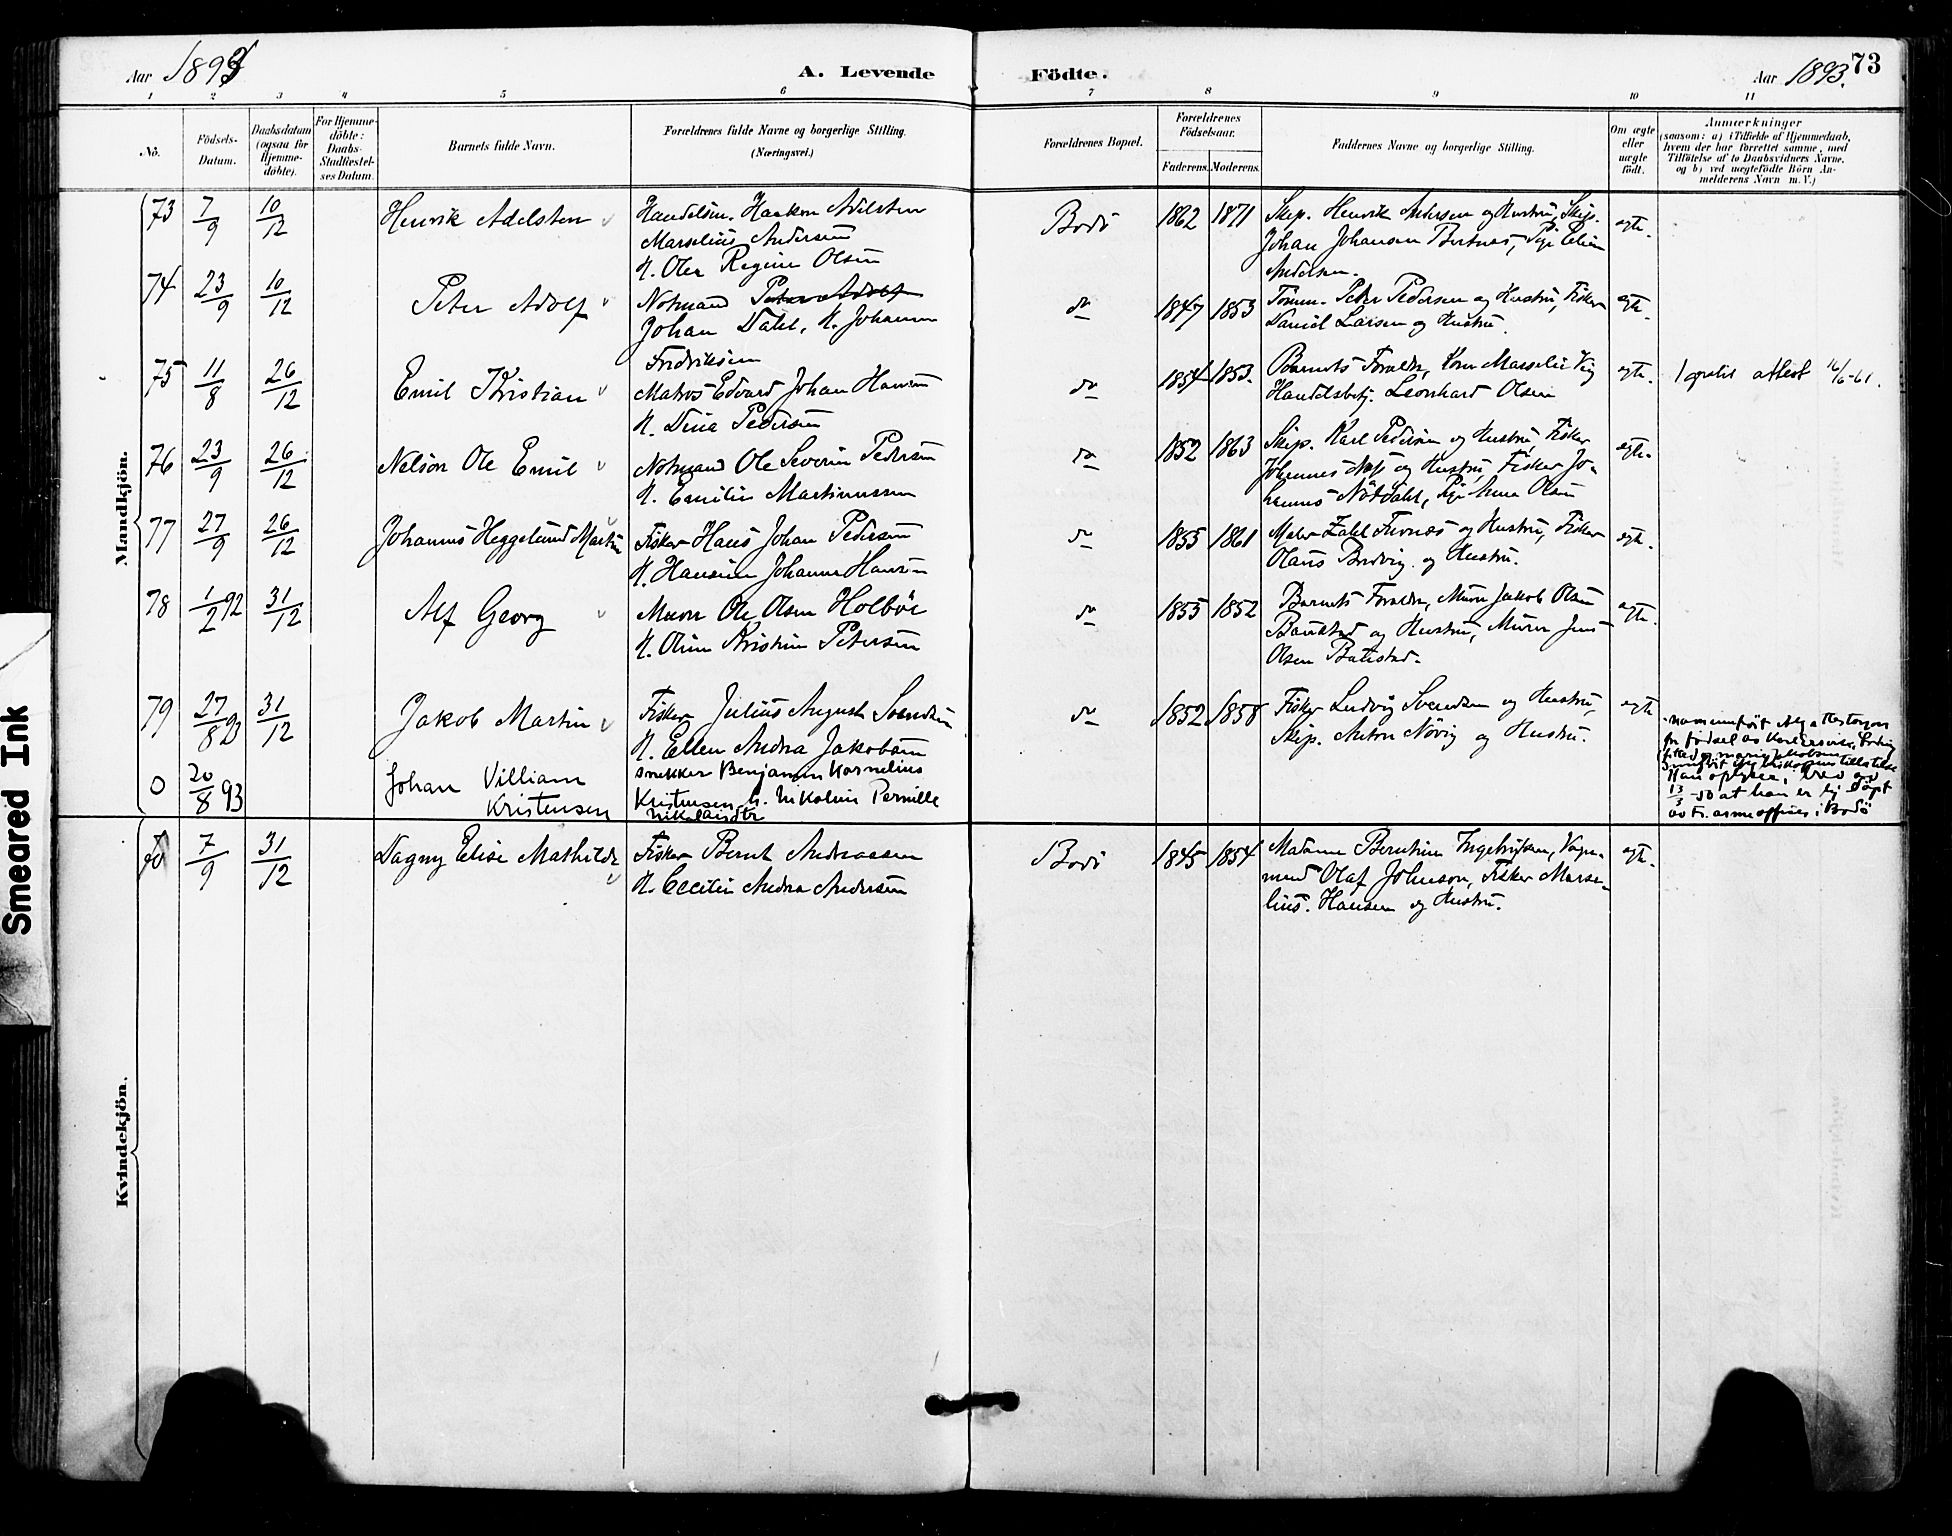 Aar 1893
A. Levende
Födte.
Aar 1893.
73
1 2 3 4 5 6 7 8 9 10 11
No.
Födsels-Datum.
Daabsdatum (ogsaa for Hjemme-döbte).
For Hjemme-döbte: Daabs-Stadfæstel-ses Datum.
Barnets fulde Navn.
Forældrenes fulde Navne og borgerlige Stilling. (Næringsvei.)
Forældrenes Bopæl.
Forældrenes Födselsaar.
Faderens. Moderens.
Faddernes Navne og borgerlige Stilling.
Om ægte eller uægte födt.
Anmærkninger
(saasom: a) i Tilfælde af Hjemmedaab, hvem der har forrettet samme, med Tilföielse af to Daabsvidners Navne, og b) ved uægtefödte Börn An-melderens Navn m. V.)
Mandkjön.
73 7/9 10/12 Henrik Adelsten
Handelsm. Haakon Adelsten
Marselius Andersen
H. Olea Regine Olsen
Bodö 1862 1871
Skip. Henrik Andersen og Hustru, Skip.
Johan Johansen Bertnes, Pige
Andersen.
egte.
74 23/9 10/12 Peter Adolf
Notmand Peter Adolf
Johan Dahl, H. Johanna
Fredriksen
do 1847 1853
Tömm. Peter Pedersen og Hustru, Fisker
Daniel Larsen og Hustru.
egte.
75 11/8 26/12 Emil Kristian
Matros Edvard Johan Hansen
H. Dina Pedersen
do 1854 1853.
Barnets Foraldre, Marselie Vig
Handelsbetj. Leonhard Olsen
egte.
1 gratis attest 16/6-61.
76 23/9 26/12 Nelson Ole Emil
Notmand Ole Severin Pedersen
H. Emilie Martinussen
do 1852 1863
Skip. Karl Pedersen og Hustru, Fisker
Johannes og Hustru, Fisker Jo-
hannes Nötdahl, Pige Anna Olsen
egte.
77 27/9 26/12 Johannes Heggelund Martin
Fisker Hans Johan Pedersen
H. Hansine Johanna Hansen
do 1855 1861
Maler Zahl Furnes og Hustru, Fisker
Olaus Bredvig og Hustru.
egte.
78 1/2 92 31/12 Alf Georg
Murer Ole Olsen Holböe
H. Oline Kristine Petersen
do 1855 1852
Barnets Foraldre, Murer Jakob Olsen
og Hustru, Murer Jens
Olsen
egte.
79 27/8 93 31/12 Jakob Martin
Fisker Julius August Svendsen
H. Ellen Andrea Jakobsen
do 1852 1858
Fisker Ludvig Svendsen og Hustru,
Skip. Anton Növig og Hustru.
egte
0 20/8 93 Johan Villiam
Kristensen
snekker Benjamin Kornelius
Kristensen h. Nikoline Pernille
Nikolaidtr
13/3-50 at han er ej döpt
i Bodö
Kvindekjön.
7/9 31/12 Dagny Elise Mathilde
Fisker Bernt Andreassen
H. Cecilie Andrea Andersen
Bodö 1845 1854
Madame Berntine Ingebrigtsen, Vogn-
mand Olaf Johnson, Fisker Marse-
lius Hansen og Hustru.
egte.
Smeared Ink